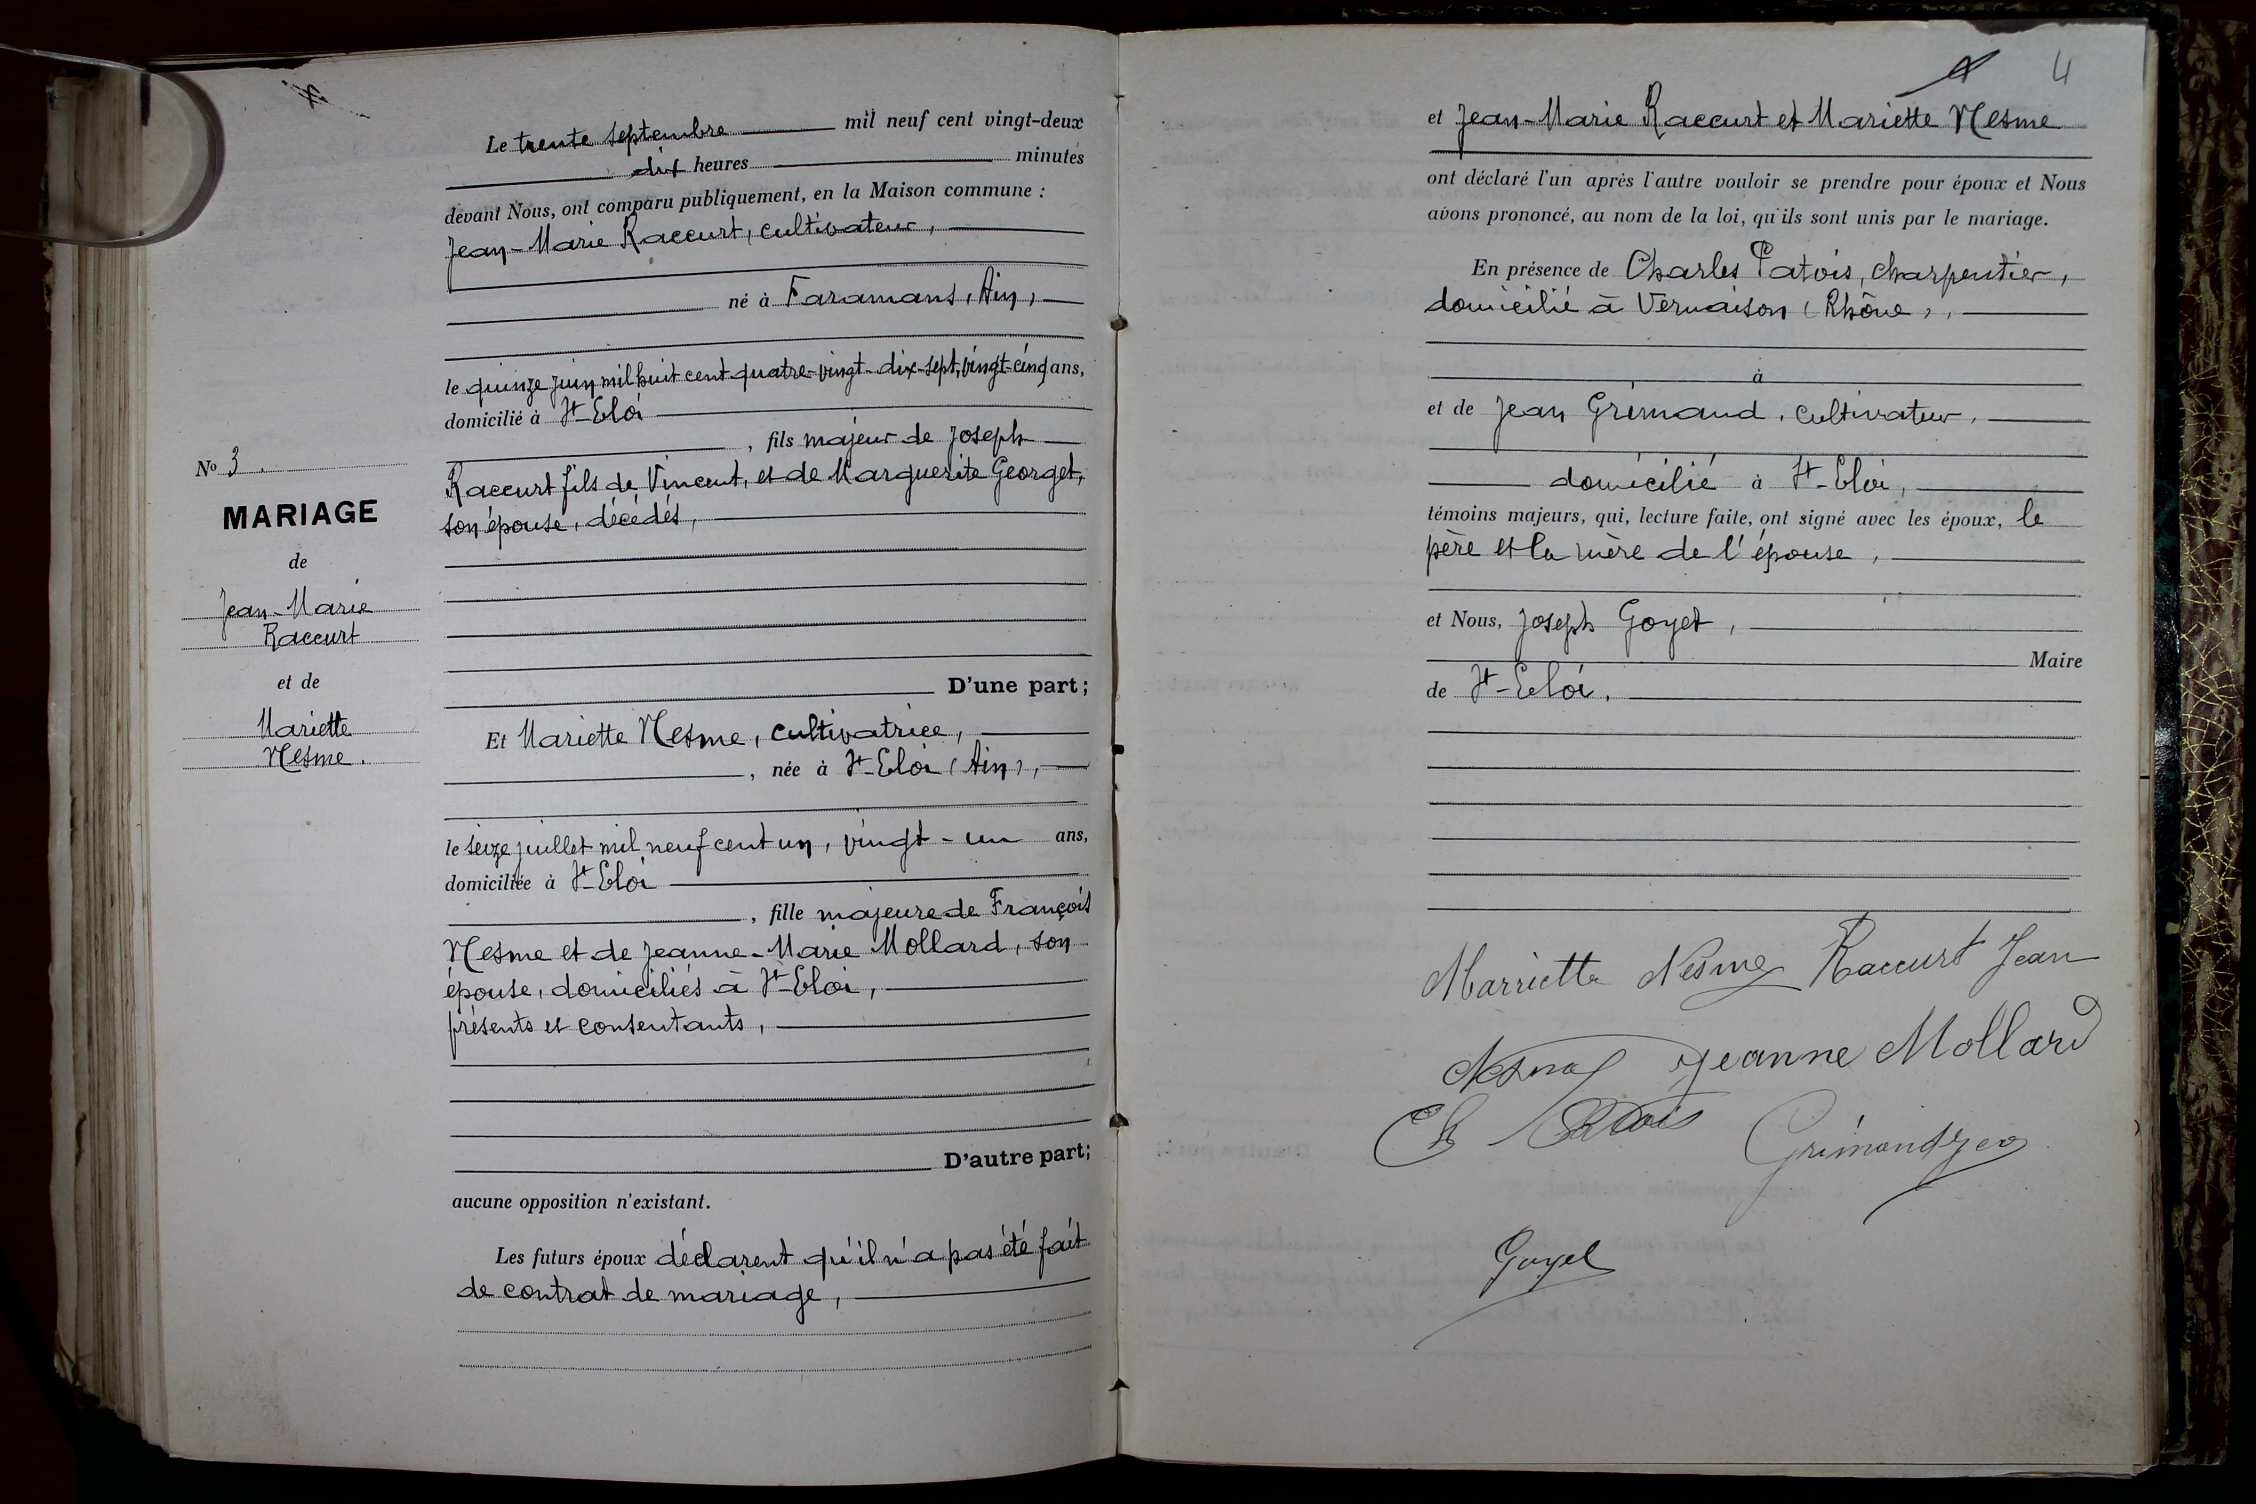 Le trente septembre mil neuf cent vingt-deux
dix heures minutes
devant Nous, ont comparu publiquement, en la Maison commune :
Jean-Marie Raccurt, cultivateur,
né à Faramans (Ain)
le quinze juin mil huit cent quatre-vingt-dix-sept, vingt-cinq ans,
domicilié à St-Eloi
, fils majeur de Joseph
Raccurt fils de Vincent, et de Marguerite Georget,
son épouse, décédés,
D'une part ;
Et Mariette Nesme, cultivatrice,
, née à St-Eloi (Ain),
le seize juillet mil neuf cent un, vingt-un ans,
domiciliée à St-Eloi
, fille majeure de François
Nesme et de Jeanne-Marie Mollard, son
épouse, domiciliés à St-Eloi,
présents et consentants,
D'autre part;
aucune opposition n'existant.
Les futurs époux déclarent qu'il n'a pas été fait
de contrat de mariage,
No 3.
MARIAGE
de
Jean-Marie
Raccurt
et de
Mariette
Nesme.
4
et Jean-Marie Raccurt et Mariette Nesme
ont déclaré l'un après l'autre vouloir se prendre pour époux et Nous
avons prononcé, au nom de la loi, qu'ils sont unis par le mariage.
En présence de Charles Patois, charpentier,
domicilié à Vernaison (Rhône),
à
et de Jean Grimaud, cultivateur,
domicilié à St-Eloi,
témoins majeurs, qui, lecture faite, ont signé avec les époux, le
père et la mère de l'épouse,
et Nous, Joseph Goyet,
Maire
de St-Eloi.
Marriette Nesme Raccurt Jean
Nesme Jeanne Mollard
Ch Patois
Goyet